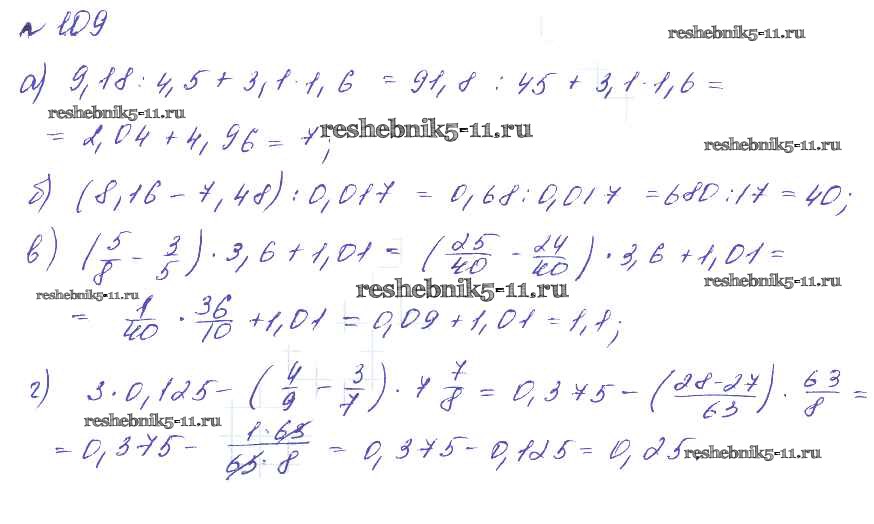 № 109
reshebnik5-11.ru
а) 9,18 : 4,5 + 3,1 · 1,6 = 91,8 : 45 + 3,1 · 1,6 =
reshebnik5-11.ru
= 2,04 + 4,96 = 7;
reshebnik5-11.ru
reshebnik5-11.ru
б) (8,16 - 7,48) : 0,017 = 0,68 : 0,017 = 680 : 17 = 40;
в) (5/8 - 3/5) · 3,6 + 1,01 = (25/40 - 24/40) · 3,6 + 1,01 =
reshebnik5-11.ru
reshebnik5-11.ru
reshebnik5-11.ru
= 1/40 · 36/10 + 1,01 = 0,09 + 1,01 = 1,1;
г) 3 · 0,125 - (4/9 - 3/7) · 7 7/8 = 0,375 - (28-27/63) · 63/8 =
reshebnik5-11.ru
= 0,375 - 1·63/63·8 = 0,375 - 0,125 = 0,25.
reshebnik5-11.ru